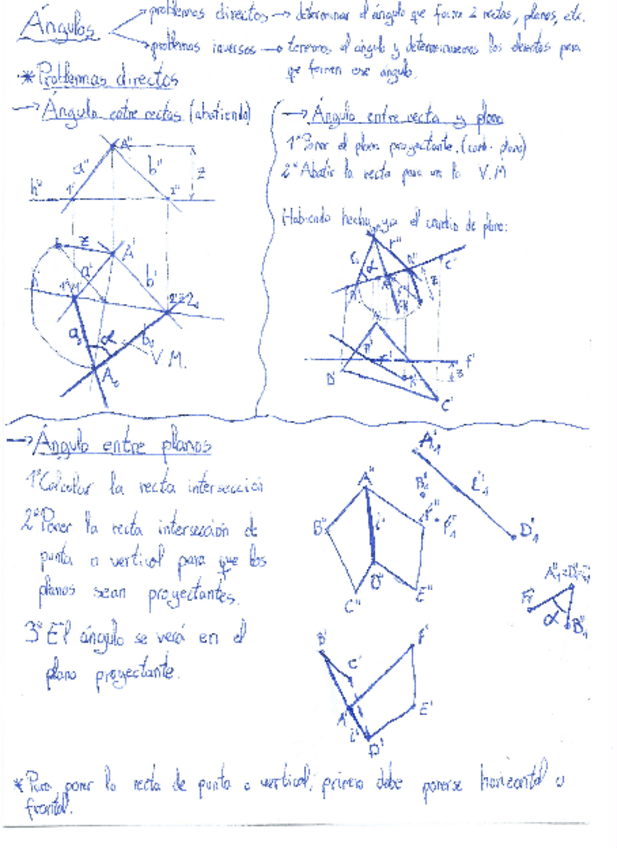 Ángulos
problemas directos → determinar el ángulo que forman 2 rectas, planos, etc.
problemas inversos → tenemos el ángulo y determinaremos los elementos para
que formen ese ángulo.
* Problemas directos
→ Ángulo entre rectas (abatiendo)
A"
a"
b"
z
h"
1"
2"
z
A'
a'
b'
a₀
α
b₀
V.M.
A₀
→ Ángulo entre recta y plano
1º Poner el plano proyectante. (camb. plano)
2º Abatir la recta para ver la V.M
Habiendo hecho ya el cambio de plano:
r"
α
C'
z
B'
r'
C'
→ Ángulo entre planos
1º Calcular la recta intersección
2º Poner la recta intersección de
punta o vertical para que los
planos sean proyectantes.
3º El ángulo se verá en el
plano proyectante.
A"
B"
F"
i"
D"
C"
E"
A'₁
B'₁
F'₁
i'₁
D'₁
A"₁≡D"₁≡i"₁
α
B"₁
B'
F'
C'
A'
E'
i'
D'
* Para poner la recta de punta o vertical, primero debe ponerse horizontal o
frontal.